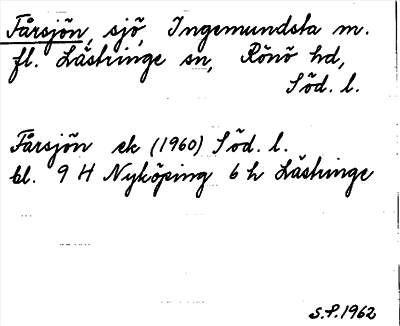 Fårsjön, sjö, Ingemundsta m.
fl. Lästringe sn, Rönö hd,
Söd. l.
Fårsjön ek (1960) Söd. l.
bl. 9 H Nyköping 6 h Lästringe
S.P. 1962